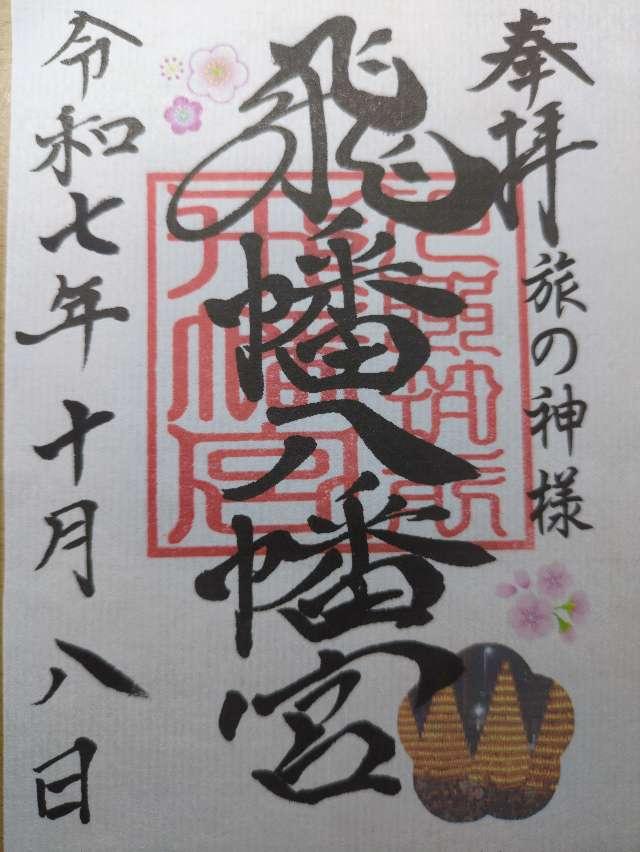 奉拝
旅の神様
飛幡八幡宮
令和七年十月八日